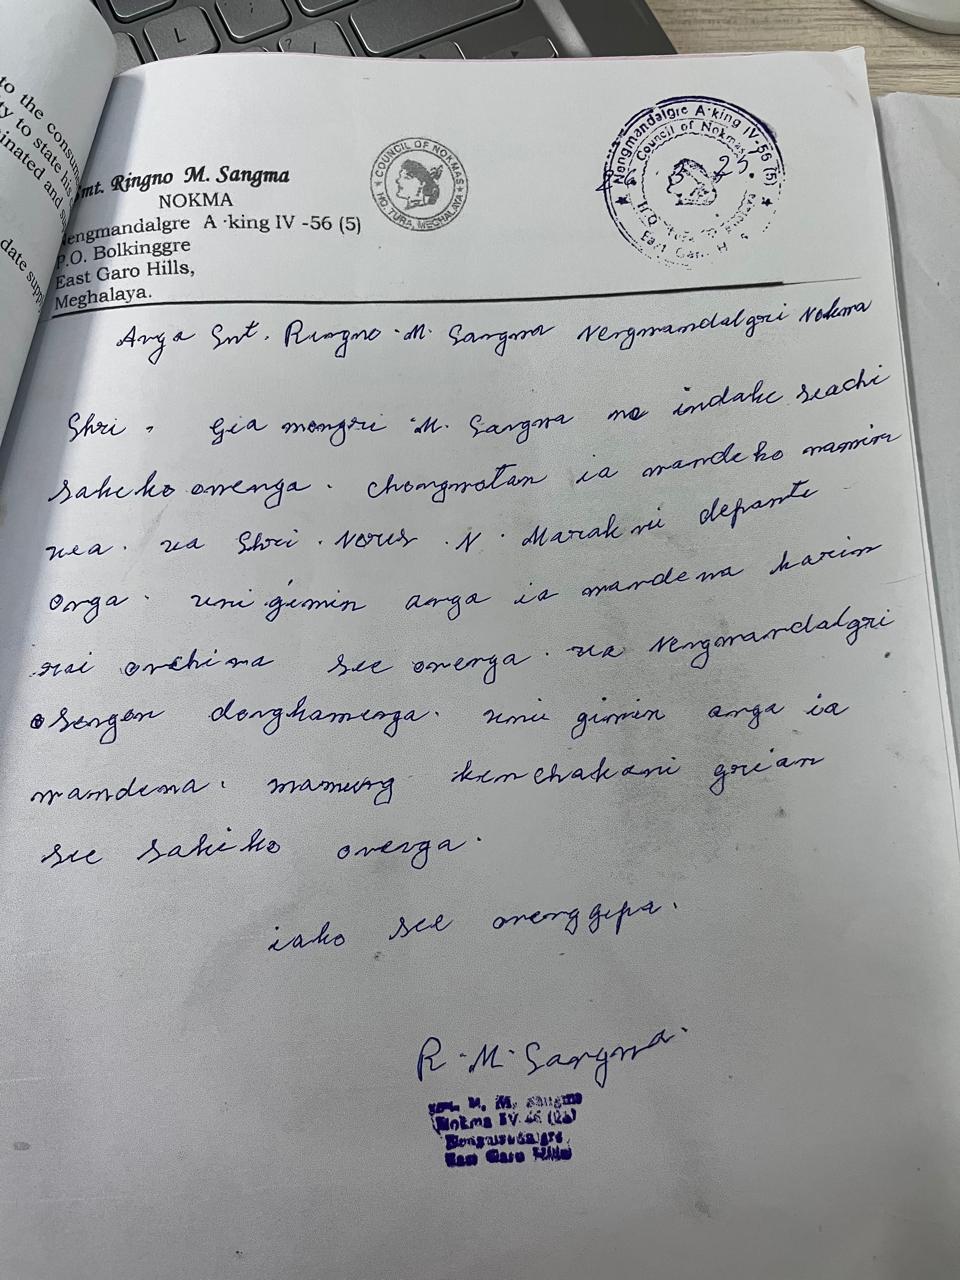 to the consum
ty to state his
inated and su
date supp
Smt. Ringno M. Sangma
NOKMA
Nengmandalgre A·king IV -56 (5)
P.O. Bolkinggre
East Garo Hills,
Meghalaya.
COUNCIL OF NOKMAS
HQ. TURA, MEGHALAYA
Nengmandalgre A·king IV-56 (5)
Council of Nokmas
East Garo Hills
Anga Smt. Ringno M. Sangma Nengmandalgri Nokma
Shri. Gia mengri M. Sangma na indake seachi
sakiko onenga. Chongmotan ia mandeko namin
uea. ua Shri. Norus N. Marak ni depante
onga. uni gimin anga ia mandena karin
rai onchina see onenga. ua Nengmandalgri
osengon dongkamenga. uni gimin anga ia
mandena. mamung kenchakani grian
see sakiko onenga.
iako see onenggipa.
R. M. Sangma
M. Sangma
Nokma IV
East Garo Hills